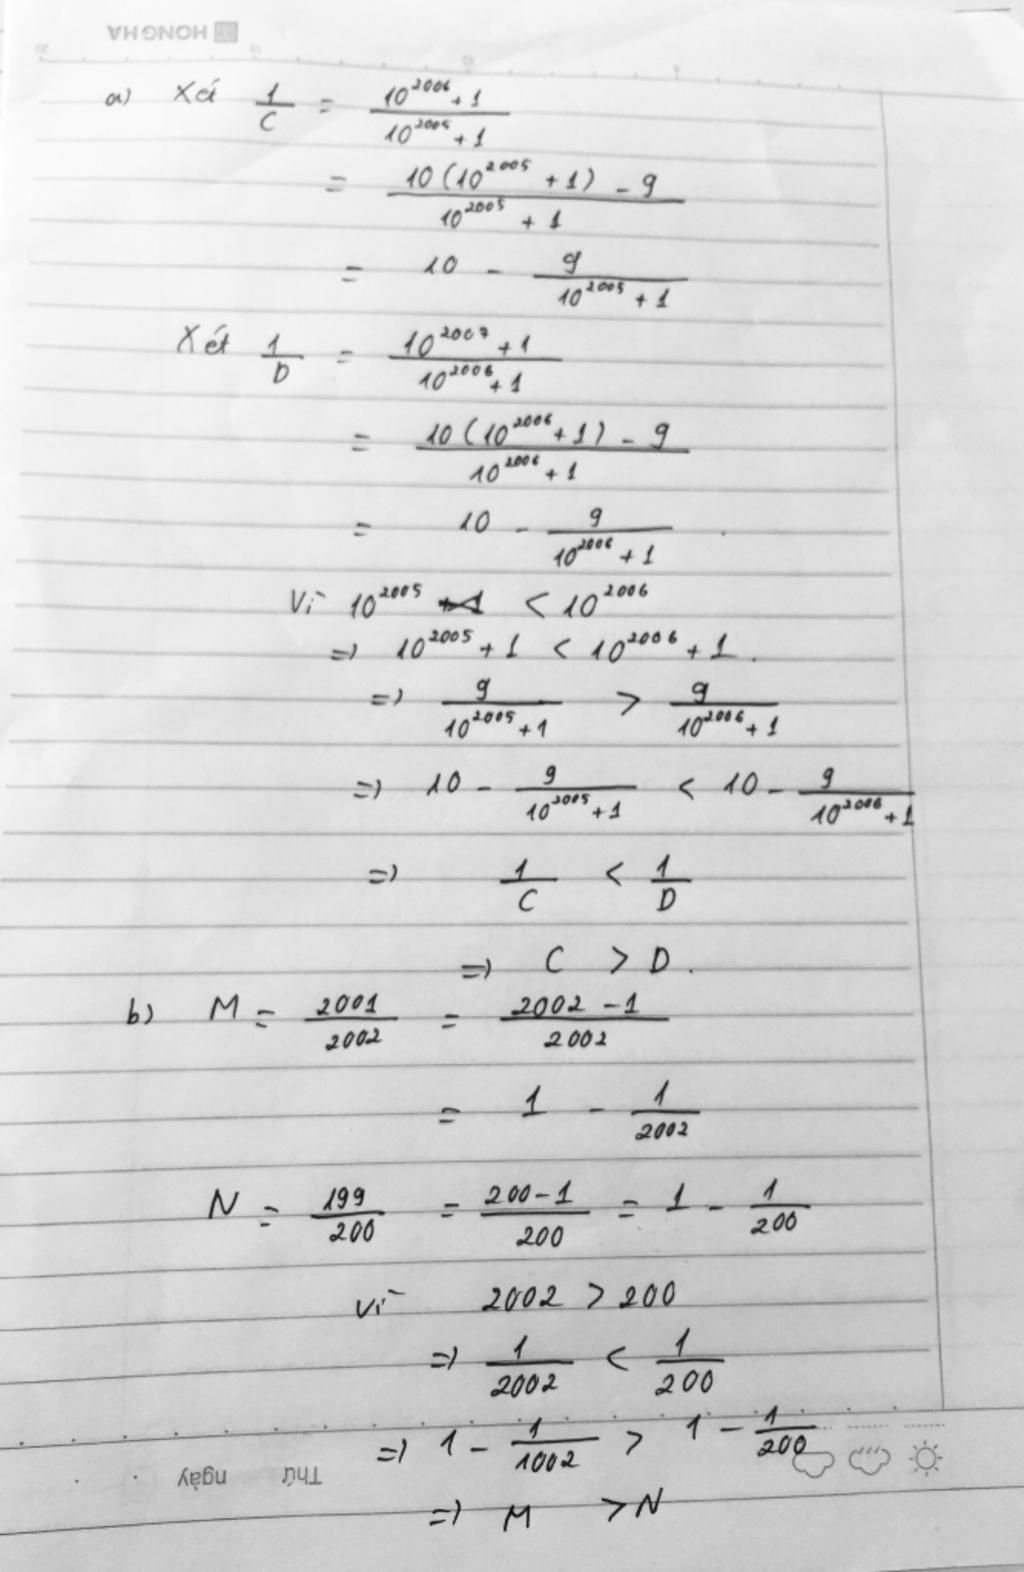 HONG HA
20 15 10 5
a) Xét 1/C = (10^2006 + 1)/(10^2005 + 1)
= (10(10^2005 + 1) - 9)/(10^2005 + 1)
= 10 - 9/(10^2005 + 1)
Xét 1/D = (10^2007 + 1)/(10^2006 + 1)
= (10(10^2006 + 1) - 9)/(10^2006 + 1)
= 10 - 9/(10^2006 + 1)
Vì 10^2005 < 10^2006
=> 10^2005 + 1 < 10^2006 + 1.
=> 9/(10^2005 + 1) > 9/(10^2006 + 1)
=> 10 - 9/(10^2005 + 1) < 10 - 9/(10^2006 + 1)
=> 1/C < 1/D
=> C > D.
b) M = 2001/2002 = (2002 - 1)/2002
= 1 - 1/2002
N = 199/200 = (200 - 1)/200 = 1 - 1/200
Vì 2002 > 200
=> 1/2002 < 1/200
=> 1 - 1/1002 > 1 - 1/200
Thứ ngày
=> M > N